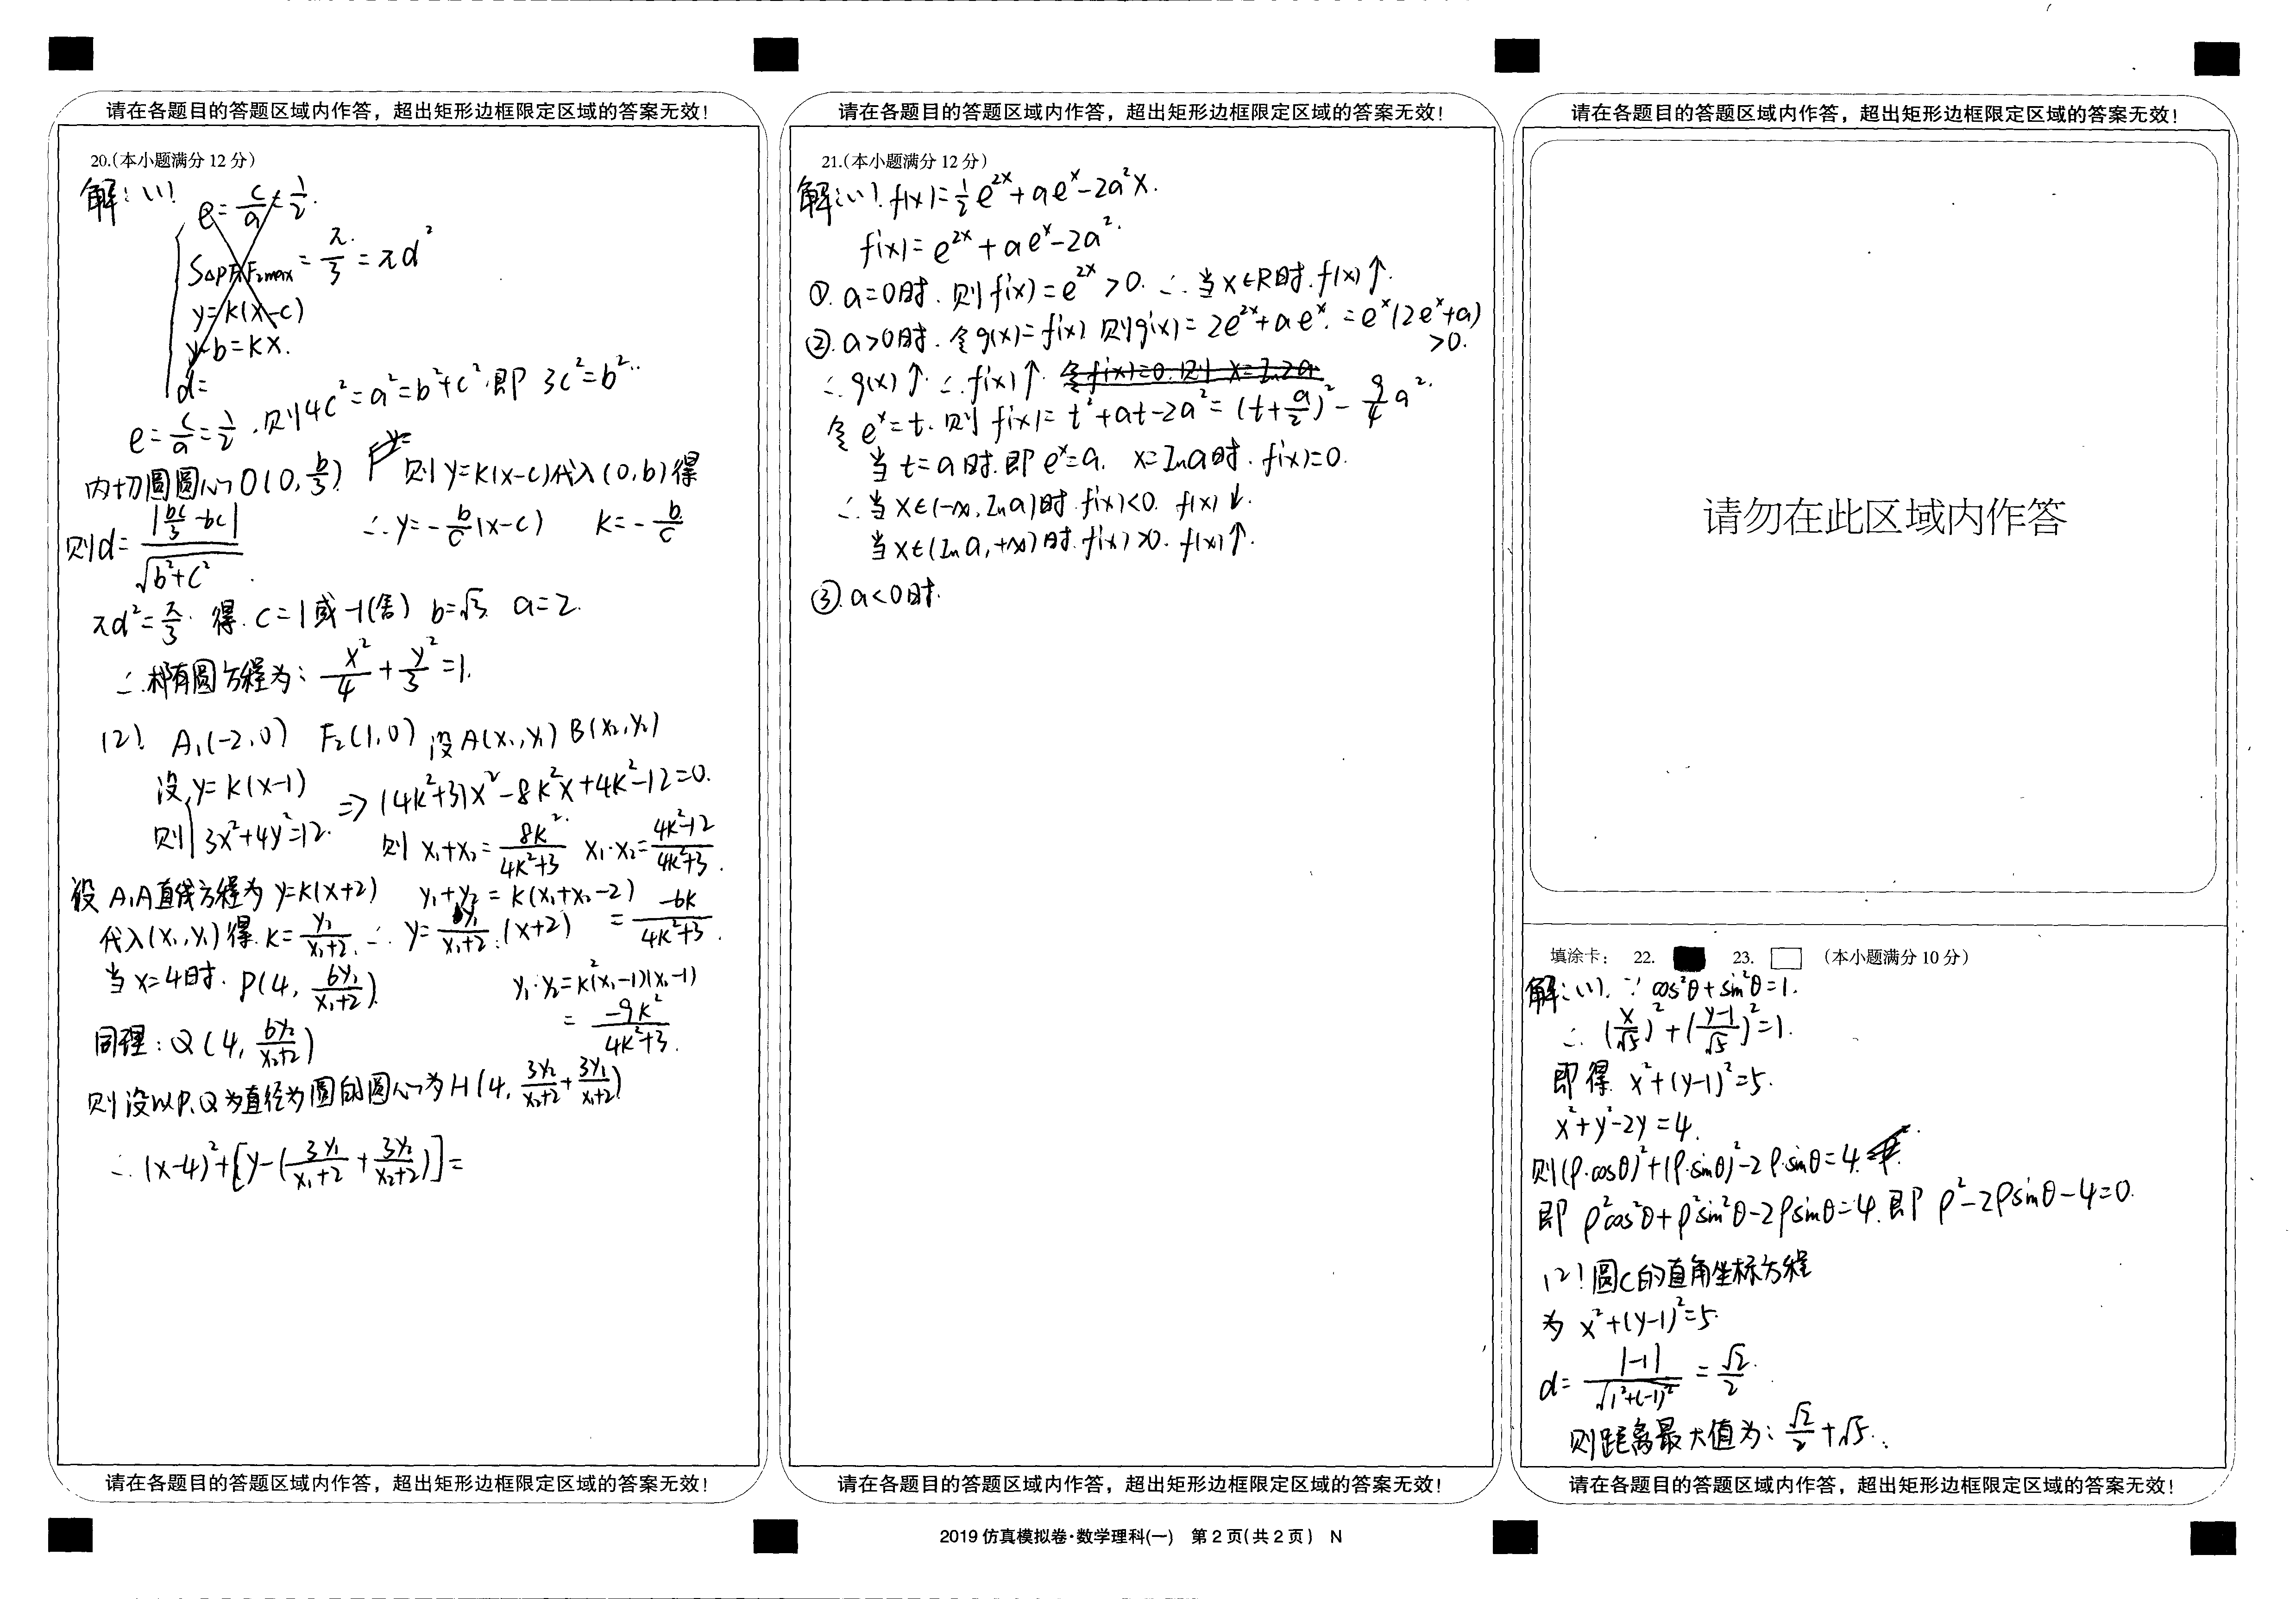 请在各题目的答题区域内作答，超出矩形边框限定区域的答案无效！
20.(本小题满分12分)
解：(1)
e=c/a=1/2.
S△PF₁F₂max=π/3=πd²
y=k(x-c)
y-b=kx.
d=
e=c/a=1/2.则4c²=a²=b²+c².即 3c²=b².
内切圆圆心O(0,b/3). 则y=k(x-c)代入(0,b)得
则d=|bc/3-bc|/√(b²+c²). ∴y=-b/c(x-c) k=-b/c
πd²=π/3. 得.c=1或-1(舍) b=√3. a=2.
∴椭圆方程为：x²/4+y²/3=1.
(2) A₁(-2,0) F₂(1,0) 设A(x₁,y₁) B(x₂,y₂)
设y=k(x-1)
则 3x²+4y²=12. ⇒(4k²+3)x²-8k²x+4k²-12=0.
则 x₁+x₂=8k²/(4k²+3) x₁·x₂=(4k²-12)/(4k²+3).
设A₁A直线方程为y=k(x+2) y₁+y₂=k(x₁+x₂-2)
代入(x₁,y₁)得.k=y₁/(x₁+2).∴y=y₁/(x₁+2).(x+2) =-6k/(4k²+3).
当x=4时. P(4,6y₁/(x₁+2)). y₁·y₂=k²(x₁-1)(x₂-1)
同理：Q(4,6y₂/(x₂+2)) =-9k²/(4k²+3).
则设以P、Q为直径为圆的圆心为H(4,3y₂/(x₂+2)+3y₁/(x₁+2))
∴(x-4)²+[y-(3y₁/(x₁+2)+3y₂/(x₂+2))]=
请在各题目的答题区域内作答，超出矩形边框限定区域的答案无效！
请在各题目的答题区域内作答，超出矩形边框限定区域的答案无效！
21.(本小题满分12分)
解：(1).f(x)=1/2e²ˣ+aeˣ-2a²x.
f'(x)=e²ˣ+aeˣ-2a².
①.a=0时.则f'(x)=e²ˣ>0.∴当x∈R时.f(x)↑.
②.a>0时.令g(x)=f'(x).则g'(x)=2e²ˣ+aeˣ.=eˣ(2eˣ+a)
>0.
∴g(x)↑.∴f'(x)↑. 令f'(x)=0.则x=ln2a
令eˣ=t.则f'(x)=t²+at-2a²=(t+a/2)²-9/4a².
当t=a时.即eˣ=a. x=lna时.f'(x)=0.
∴当x∈(-∞,lna)时.f'(x)<0. f(x)↓.
当x∈(lna,+∞)时.f'(x)>0. f(x)↑.
③.a<0时.
请在各题目的答题区域内作答，超出矩形边框限定区域的答案无效！
请在各题目的答题区域内作答，超出矩形边框限定区域的答案无效！
请勿在此区域内作答
填涂卡： 22. 23. (本小题满分10分)
解：(1).∵cos²θ+sin²θ=1.
∴(x/√5)²+(y-1/√5)²=1.
即得 x²+(y-1)²=5.
x²+y²-2y=4.
则(ρ·cosθ)²+(ρ·sinθ)²-2ρ·sinθ=4.
即 ρ²cos²θ+ρ²sin²θ-2ρsinθ=4.即 ρ²-2ρsinθ-4=0.
(2)圆C的直角坐标方程
为 x²+(y-1)²=5.
d=|-1|/√(1²+(-1)²)=√2/2.
则距离最大值为：√2/2+√5.
请在各题目的答题区域内作答，超出矩形边框限定区域的答案无效！
2019仿真模拟卷·数学理科(一) 第2页(共2页) N